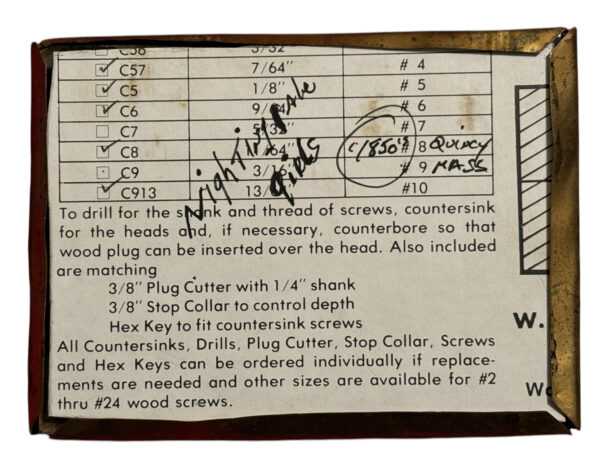 C56 3/32"
C57 7/64" # 4
C5 1/8" # 5
C6 9/64" # 6
C7 5/32" # 7
C8 11/64" # 8
C9 3/16" # 9
C913 13/ #10
Nightingale
girls
c1850's
QUINCY
MASS
To drill for the shank and thread of screws, countersink
for the heads and, if necessary, counterbore so that
wood plug can be inserted over the head. Also included
are matching
3/8" Plug Cutter with 1/4" shank
3/8" Stop Collar to control depth
Hex Key to fit countersink screws
All Countersinks, Drills, Plug Cutter, Stop Collar, Screws
and Hex Keys can be ordered individually if replace-
ments are needed and other sizes are available for #2
thru #24 wood screws.
W.
Wo